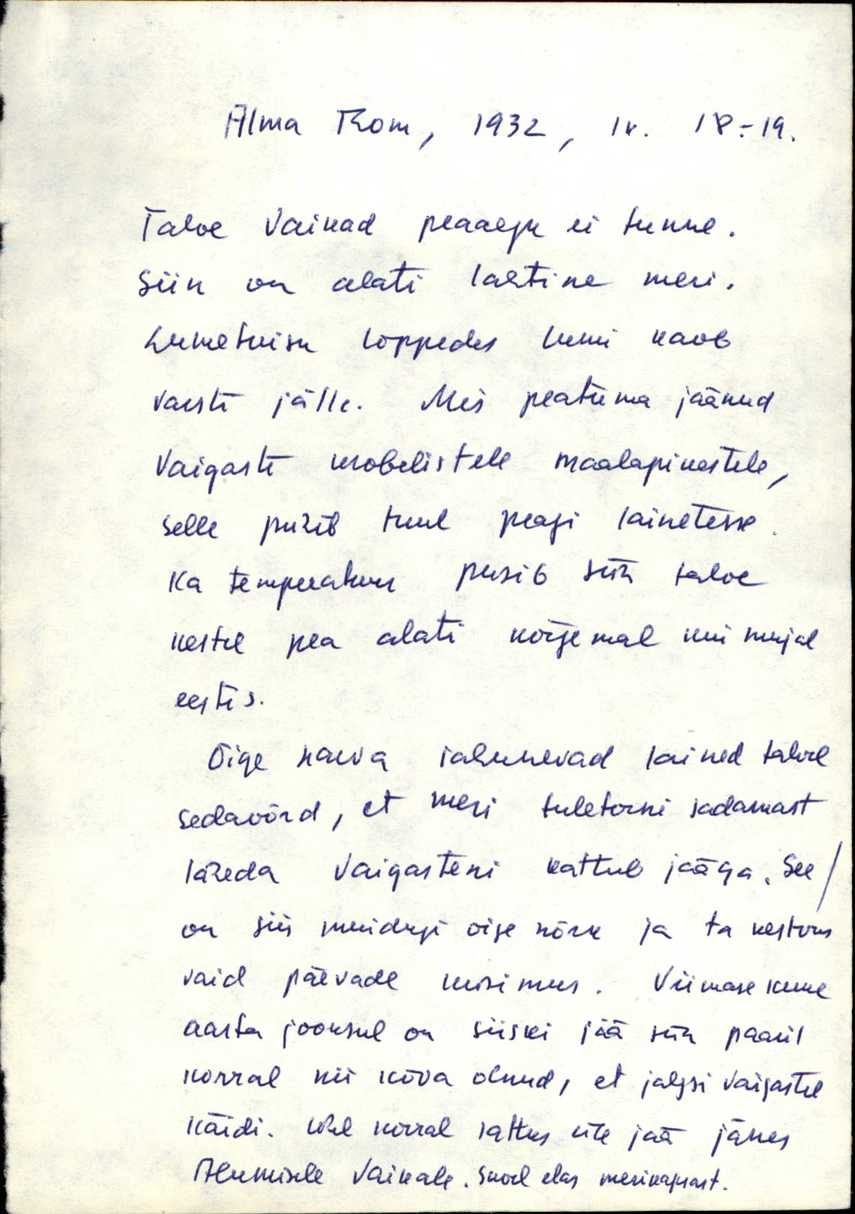 Alma Thom, 1932, lk. 18-19.
Talve Vaikad peaaegu ei tunne.
Siin on alati lahtine meri.
Lumetuisu lõppedes lumi kaob
varsti jälle. Mis peatuma jäänud
Vaigaste krobelistele maalapikestele,
selle puhib tuul peagi lainetesse.
Ka temperatuur püsib siin talve
kestel pea alati kõrgemal kui mujal
eestis.
Õige harva rahunevad lained talvel
sedavõrd, et meri tuletorni sadamast
laheda Vaigasteni kattub jääga. See
on siis muidugi õige nõrk ja ta kestvus
vaid päevade küsimus. Viimase kume
aasta jooksul on siiski jää siin paaril
korral nii kõva olnud, et jalgsi Vaigastel
käidi. Ühel korral sattus üle jää jänes
Alumisele Vaikale. Suvel elas merikapsast.